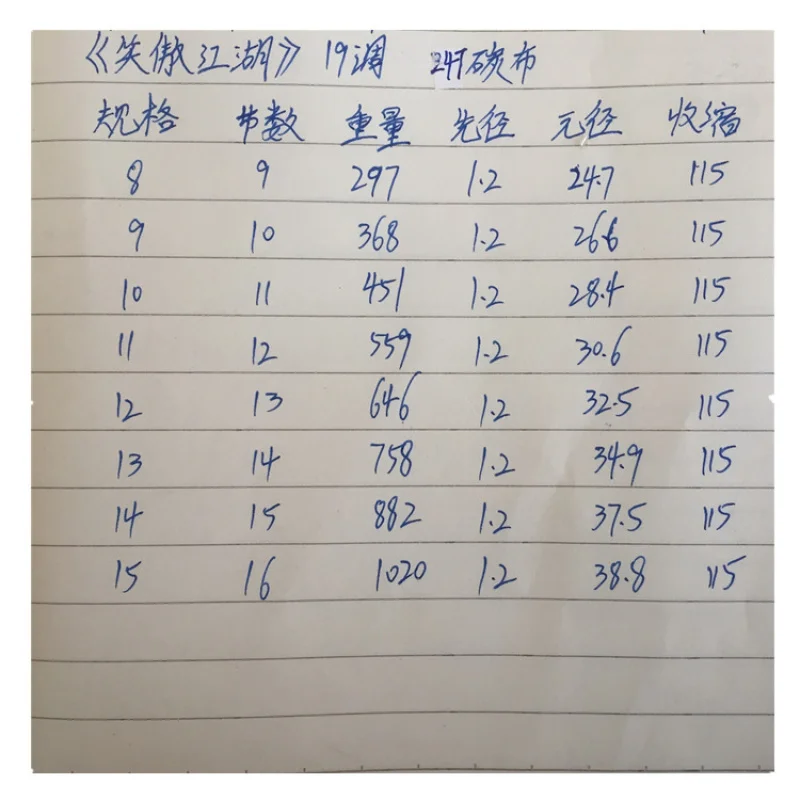 《笑傲江湖》 19调 24T碳布
规格 节数 重量 先径 元径 收缩
8 9 297 1.2 24.7 115
9 10 368 1.2 26.6 115
10 11 451 1.2 28.4 115
11 12 559 1.2 30.6 115
12 13 646 1.2 32.5 115
13 14 758 1.2 34.9 115
14 15 882 1.2 37.5 115
15 16 1020 1.2 38.8 115